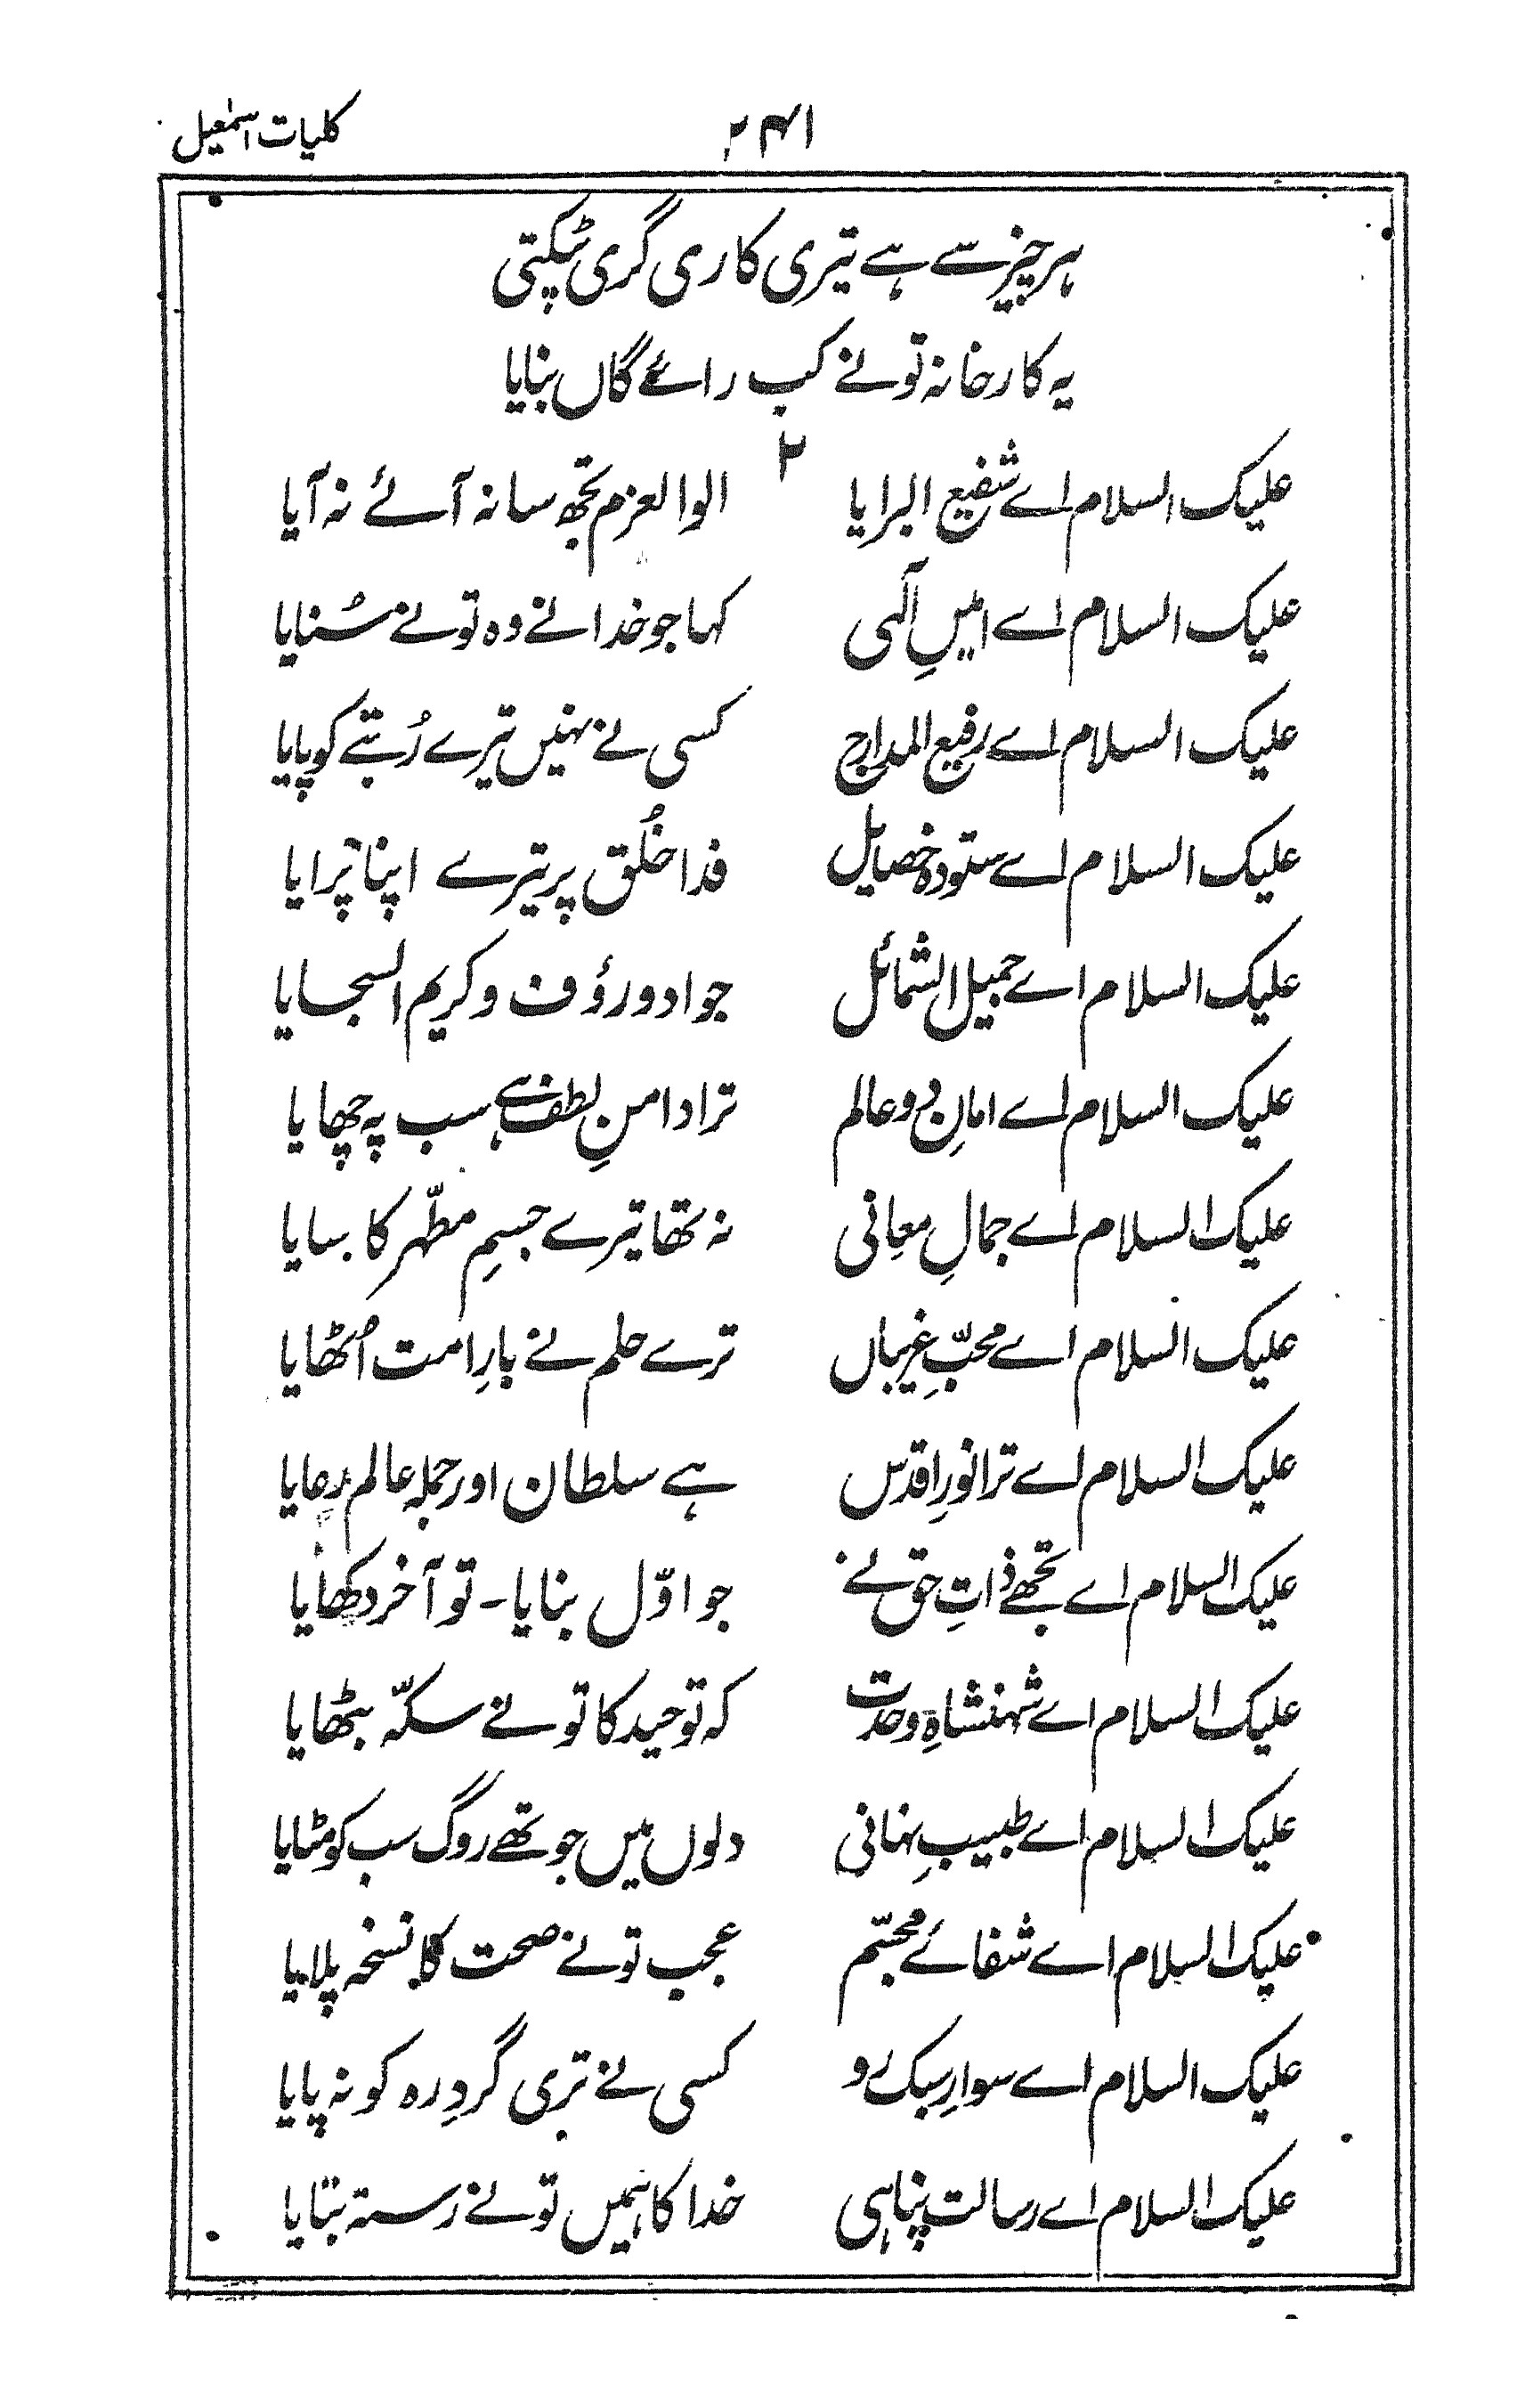 کلیات اسمٰعیل
۲۴۱
ہر چیز سے ہے تیری کاری گری ٹپکتی
یہ کارخانہ تو نے کب رائے گاں بنایا
۲
علیک السلام اے شفیع البرایا الوالعزم تجھ سا نہ آئے نہ آیا
علیک السلام اے امیںِ آلٰہی کہا جو خدا نے وہ تو نے سُنایا
علیک السلام اے رفیع المدارج کسی نے نہیں تیرے رُتبے کو پایا
علیک السلام اے ستودہ خصایل فدا خُلق پر تیرے اپنا پَرایا
علیک السلام اے جمیل الشمائل جواد و رؤف و کریم السجایا
علیک السلام اے امانِ دو عالم ترا دامنِ لطف ہے سب پہ چھایا
علیک السلام اے جمالِ معانی نہ تھا تیرے جسمِ مطّہر کا سایا
علیک السلام اے محبِّ غریباں ترے حلم نے بارِ امت اُٹھایا
علیک السلام اے ترا نورِ اقدس ہے سلطان اور جملہ عالم رعایا
علیک السلام اے تجھے ذاتِ حق نے جو اوّل بنایا ۔ تو آخر دکھایا
علیک السلام اے شہنشاہِ وحدت کہ توحید کا تو نے سکّہ بٹھایا
علیک السلام اے طبیبِ نہانی دلوں میں جو تھے روگ سب کو مٹایا
علیک السلام اے شفائے مجسّم عجب تو نے صحت کا نسخہ پلایا
علیک السلام اے سوارِ سبک رو کسی نے تری گردِ رہ کو نہ پایا
علیک السلام اے رسالت پناہی خدا کا ہمیں تو نے رستہ بتایا